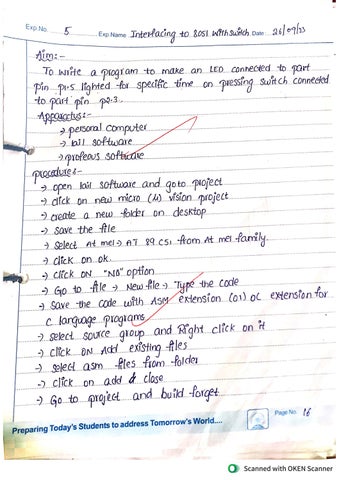 Exp No. 5 Exp Name Interfacing to 8051 with switch Date 26/09/23
Aim:-
To write a program to make an LED connected to part
pin p1.5 lighted for specific time on pressing switch connected
to part pin p2.3.
Apparatus:-
→ personal computer
→ kail software
→ profeous software
procedure:-
→ open kail software and goto project
→ click on new micro (u) vision project
→ create a new folder on desktop
→ save the file
→ select At mel → AT 89.C51 from At mel family.
→ click on ok.
→ click ON "No" option
→ Go to file → New file → Type the code
→ Save the code with ASM extension (or) oc extension for
c language programs
→ select source group and Right click on it
→ click ON Add existing files
→ select asm files from folder
→ click on add & close
→ Go to project and build forget.
Preparing Today's Students to address Tomorrow's World....
Page No. 16
Scanned with OKEN Scanner